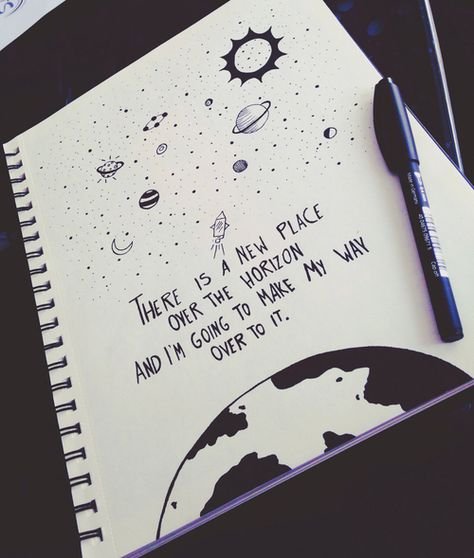 THERE IS A NEW PLACE
OVER THE HORIZON
AND I'M GOING TO MAKE MY WAY
OVER TO IT.